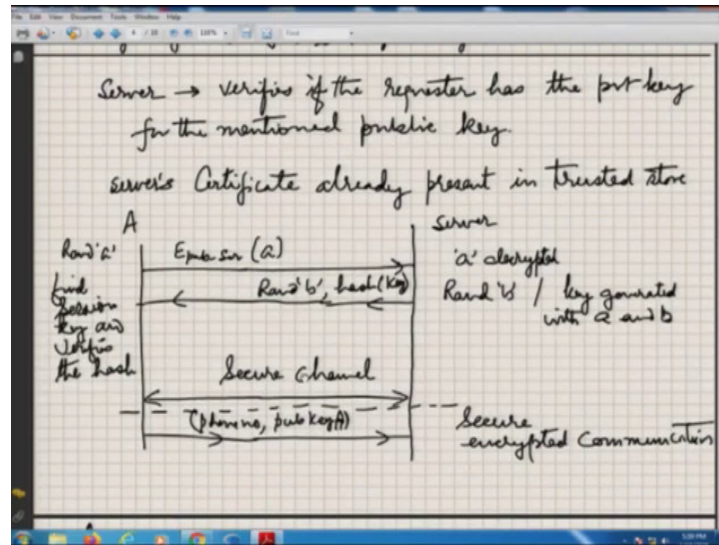 File Edit View Document Tools Window Help
4 / 10 110% Find
Server → verifies if the requester has the pvt key
for the mentioned public key.
server's Certificate already present in trusted store
A server
Rand 'a' E pub ser (a) 'a' decrypted
find Rand 'b', hash(key) Rand 'b' / key generated
session with a and b
key and
verifies
the hash
Secure Channel
(phone no, pub key A) Secure
encrypted Communication
5:09 PM